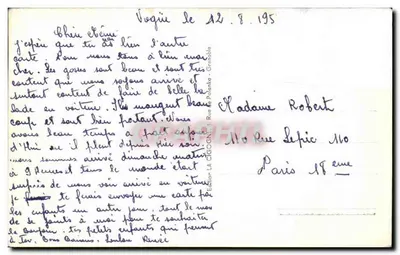 Vogüé le 12.8.195
Chère Mémé
j'espère que tu as bien l'autre
carte. nous nous à bien mar
cher. Les gosses sont beau et sont très
content que nous soyons arrivé et
surtout content de faire de belle ba
lade en voiture. Ils mangent beau
coup et sont bien portant. Nous
avons beau temps à part aujour
d'Hui ou il pleut depuis hier soir
nous sommes arrivé dimanche matin
à 9 Heures et tout le monde était
surpris de nous voir arrivé en voiture
je te ferais envoyer une carte par
les enfants un autre jour, tout le mon
de se joint à moi pour te souhaiter
le bonjour. tes petits enfants qui pensent
à toi. Bons Baisers.
Madame Robert
110 Rue Lepic 110
Paris 18eme